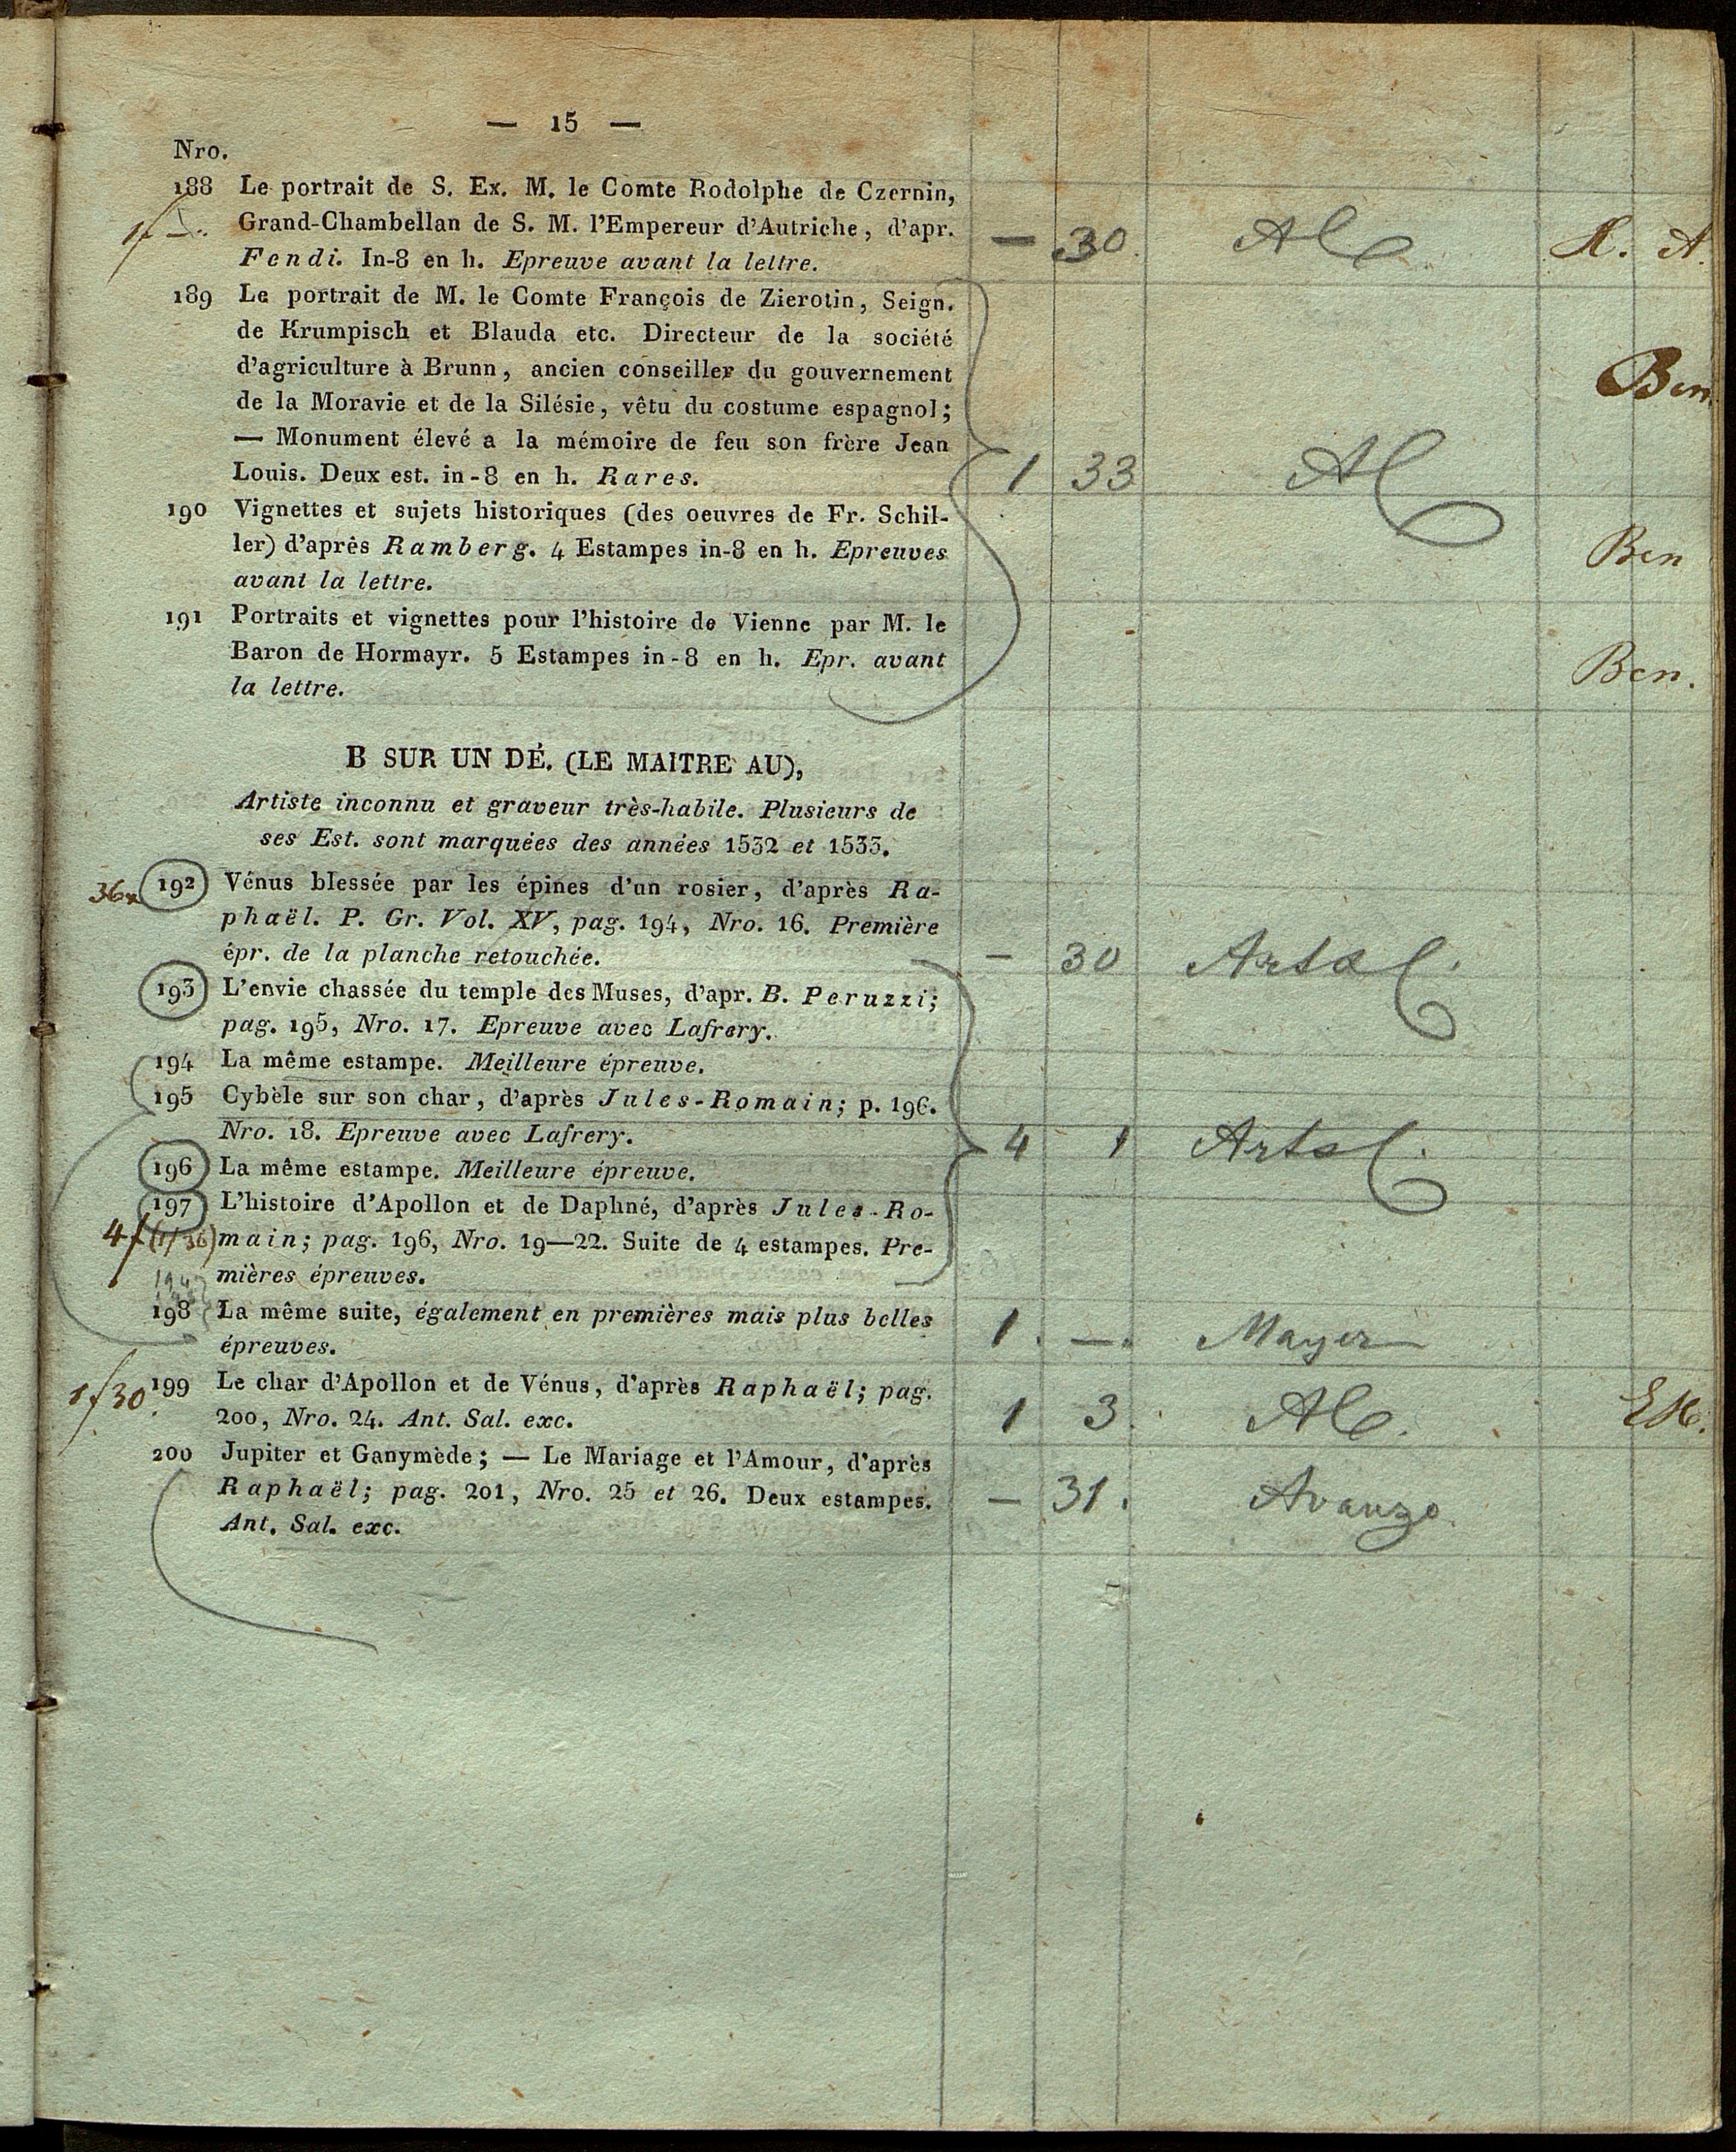 — 15 —
Nro.
188 Le portrait de S. Ex. M. le Comte Rodolphe de Czernin,
1f —. Grand-Chambellan de S. M. l'Empereur d'Autriche, d'apr. — 30. R. A.
Fendi. In-8 en h. Epreuve avant la lettre.
189 Le portrait de M. le Comte François de Zierotin, Seign.
de Krumpisch et Blauda etc. Directeur de la société
d'agriculture à Brunn, ancien conseiller du gouvernement Ben.
de la Moravie et de la Silésie, vêtu du costume espagnol;
— Monument élevé a la mémoire de feu son frère Jean
Louis. Deux est. in-8 en h. Rares. 1 33
190 Vignettes et sujets historiques (des oeuvres de Fr. Schil-
ler) d'après Ramberg. 4 Estampes in-8 en h. Epreuves Ben
avant la lettre.
191 Portraits et vignettes pour l'histoire de Vienne par M. le
Baron de Hormayr. 5 Estampes in-8 en h. Epr. avant Ben.
la lettre.
B SUR UN DÉ. (LE MAITRE AU),
Artiste inconnu et graveur très-habile. Plusieurs de
ses Est. sont marquées des années 1532 et 1533.
36x 192 Vénus blessée par les épines d'un rosier, d'après Ra-
phaël. P. Gr. Vol. XV, pag. 194, Nro. 16. Première
épr. de la planche retouchée. — 30 Artal.
193 L'envie chassée du temple des Muses, d'apr. B. Peruzzi;
pag. 195, Nro. 17. Epreuve avec Lafrery.
194 La même estampe. Meilleure épreuve.
195 Cybèle sur son char, d'après Jules-Romain; p. 196.
Nro. 18. Epreuve avec Lafrery. 4 1 Artal.
196 La même estampe. Meilleure épreuve.
197 L'histoire d'Apollon et de Daphné, d'après Jules-Ro-
4f (1f 36) main; pag. 196, Nro. 19—22. Suite de 4 estampes. Pre-
mières épreuves.
198 La même suite, également en premières mais plus belles 1. —. Mayer
épreuves.
1f30 199 Le char d'Apollon et de Vénus, d'après Raphaël; pag.
200, Nro. 24. Ant. Sal. exc. 1 3.
200 Jupiter et Ganymède; — Le Mariage et l'Amour, d'après
Raphaël; pag. 201, Nro. 25 et 26. Deux estampes. — 31. Avanzo.
Ant. Sal. exc.